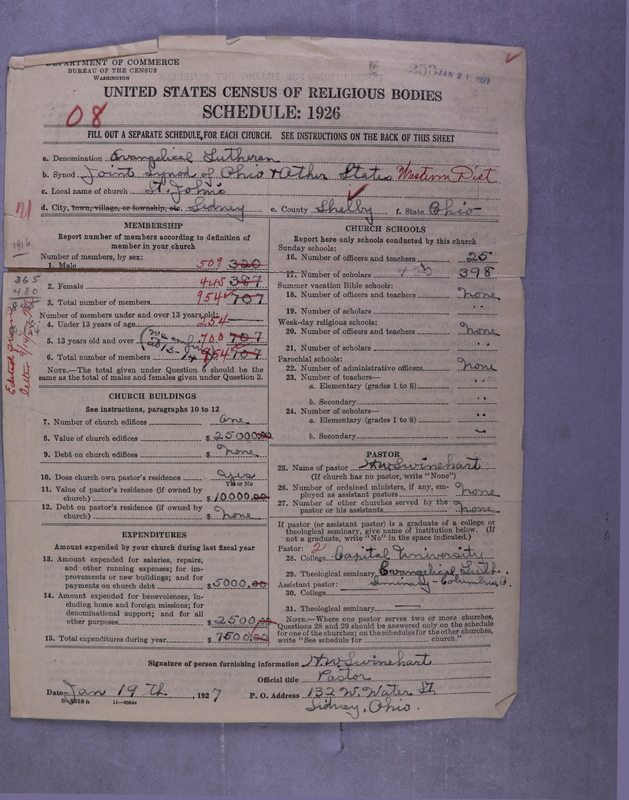 DEPARTMENT OF COMMERCE
BUREAU OF THE CENSUS
WASHINGTON
253 JAN 21 1927
UNITED STATES CENSUS OF RELIGIOUS BODIES
SCHEDULE: 1926
08
FILL OUT A SEPARATE SCHEDULE FOR EACH CHURCH. SEE INSTRUCTIONS ON THE BACK OF THIS SHEET
a. Denomination Evangelical Lutheran
b. Synod Joint Synod of Ohio & Other States Western Dist
c. Local name of church St. John's
d. City, town, village, or township, etc. Sidney e. County Shelby f. State Ohio
MEMBERSHIP
Report number of members according to definition of
member in your church
1916
Number of members, by sex:
1. Male 509 320
365
480
2. Female 445 387
3. Total number of members 954 707
Number of members under and over 13 years old:
4. Under 13 years of age 254
5. 13 years old and over 700 707
6. Total number of members 954 707
NOTE.—The total given under Question 6 should be the
same as the total of males and females given under Question 3.
CHURCH BUILDINGS
See instructions, paragraphs 10 to 12
7. Number of church edifices One
8. Value of church edifices $ 25000.00
9. Debt on church edifices $ None
10. Does church own pastor's residence yes
Yes or No
11. Value of pastor's residence (if owned by
church) $ 10000.00
12. Debt on pastor's residence (if owned by
church) $ None
EXPENDITURES
Amount expended by your church during last fiscal year
13. Amount expended for salaries, repairs,
and other running expenses; for im-
provements or new buildings; and for
payments on church debt $ 5000.00
14. Amount expended for benevolences, in-
cluding home and foreign missions; for
denominational support; and for all
other purposes $ 2500.00
15. Total expenditures during year $ 7500.00
CHURCH SCHOOLS
Report here only schools conducted by this church
Sunday schools:
16. Number of officers and teachers 25
17. Number of scholars 398
Summer vacation Bible schools:
18. Number of officers and teachers None
19. Number of scholars "
Week-day religious schools:
20. Number of officers and teachers None
21. Number of scholars "
Parochial schools:
22. Number of administrative officers None
23. Number of teachers—
a. Elementary (grades 1 to 8) "
b. Secondary "
24. Number of scholars—
a. Elementary (grades 1 to 8) "
b. Secondary "
PASTOR
25. Name of pastor H W Swinehart
(If church has no pastor, write "None")
26. Number of ordained ministers, if any, em-
ployed as assistant pastors None
27. Number of other churches served by the
pastor or his assistants None
If pastor (or assistant pastor) is a graduate of a college or
theological seminary, give name of institution below. (If
not a graduate, write "No" in the space indicated.)
Pastor: 2
28. College Capital University
29. Theological seminary Evangelical Luth.
Assistant pastor: Seminary - Columbus, O.
30. College
31. Theological seminary
NOTE.—Where one pastor serves two or more churches,
Questions 28 and 29 should be answered only on the schedule
for one of the churches; on the schedules for the other churches,
write "See schedule for church."
Signature of person furnishing information H. W Swinehart
Official title Pastor
Date Jan 19th, 1927 P. O. Address 132 W. Water St
8-5518 a
Sidney, Ohio.